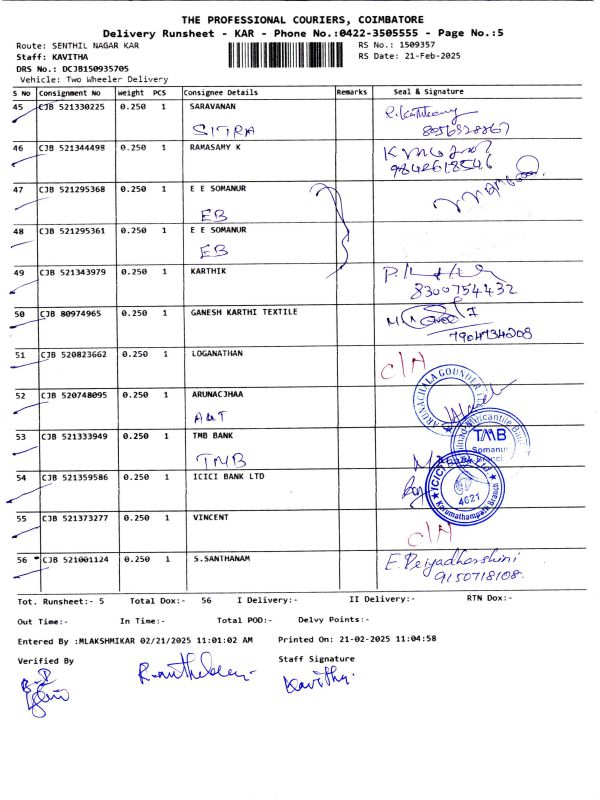 THE PROFESSIONAL COURIERS, COIMBATORE
Delivery Runsheet - KAR - Phone No.:0422-3505555 - Page No.:5
Route: SENTHIL NAGAR KAR RS No.: 1509357
Staff: KAVITHA RS Date: 21-Feb-2025
DRS No.: DCJB150935705
Vehicle: Two Wheeler Delivery
S No Consignment No Weight PCS Consignee Details Remarks Seal & Signature
45 CJB 521330225 0.250 1 SARAVANAN
SITRA
46 CJB 521344498 0.250 1 RAMASAMY K
9842618546
47 CJB 521295368 0.250 1 E E SOMANUR
EB
48 CJB 521295361 0.250 1 E E SOMANUR
EB
49 CJB 521343979 0.250 1 KARTHIK
8300754432
50 CJB 80974965 0.250 1 GANESH KARTHI TEXTILE
7904734208
51 CJB 520823662 0.250 1 LOGANATHAN
52 CJB 520748095 0.250 1 ARUNACJHAA
ARUNACHALA GOUNDER
53 CJB 521333949 0.250 1 TMB BANK
TMB
TMB
Somanur
Branch
54 CJB 521359586 0.250 1 ICICI BANK LTD
ICICI
4621
Karumathampatti Branch
55 CJB 521373277 0.250 1 VINCENT
56 CJB 521001124 0.250 1 S.SANTHANAM E. Priyadharshini
9150718108
Tot. Runsheet:- 5 Total Dox:- 56 I Delivery:- II Delivery:- RTN Dox:-
Out Time:- In Time:- Total POD:- Delvy Points:-
Entered By :MLAKSHMIKAR 02/21/2025 11:01:02 AM Printed On: 21-02-2025 11:04:58
Verified By Staff Signature
Kavitha.